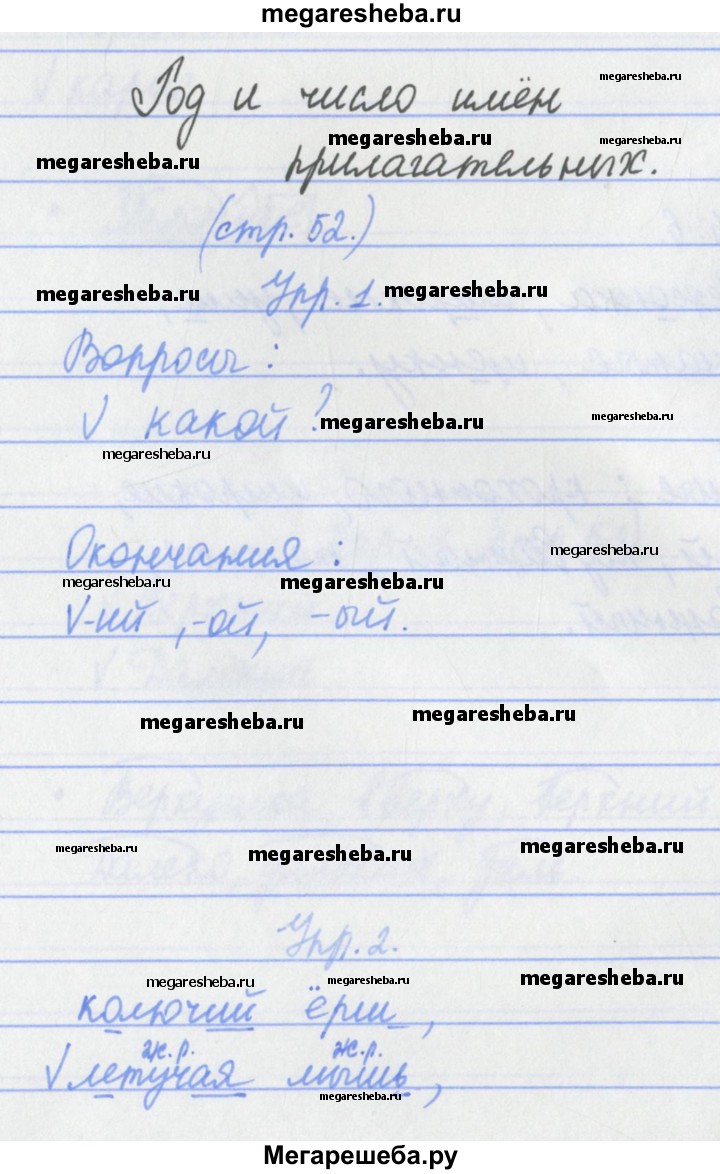 megaresheba.ru
Род и число имён megaresheba.ru
megaresheba.ru megaresheba.ru
прилагательных. megaresheba.ru
(стр. 52.)
megaresheba.ru Упр. 1. megaresheba.ru
Вопросы:
√ какой? megaresheba.ru megaresheba.ru
megaresheba.ru
Окончания: megaresheba.ru
megaresheba.ru megaresheba.ru
√-ий, -ой, -ый.
megaresheba.ru megaresheba.ru
megaresheba.ru megaresheba.ru megaresheba.ru
Упр. 2.
megaresheba.ru megaresheba.ru megaresheba.ru
колючий ёрш,
ж.р. ж.р.
√ летучая мышь,
megaresheba.ru
Мегарешеба.ру